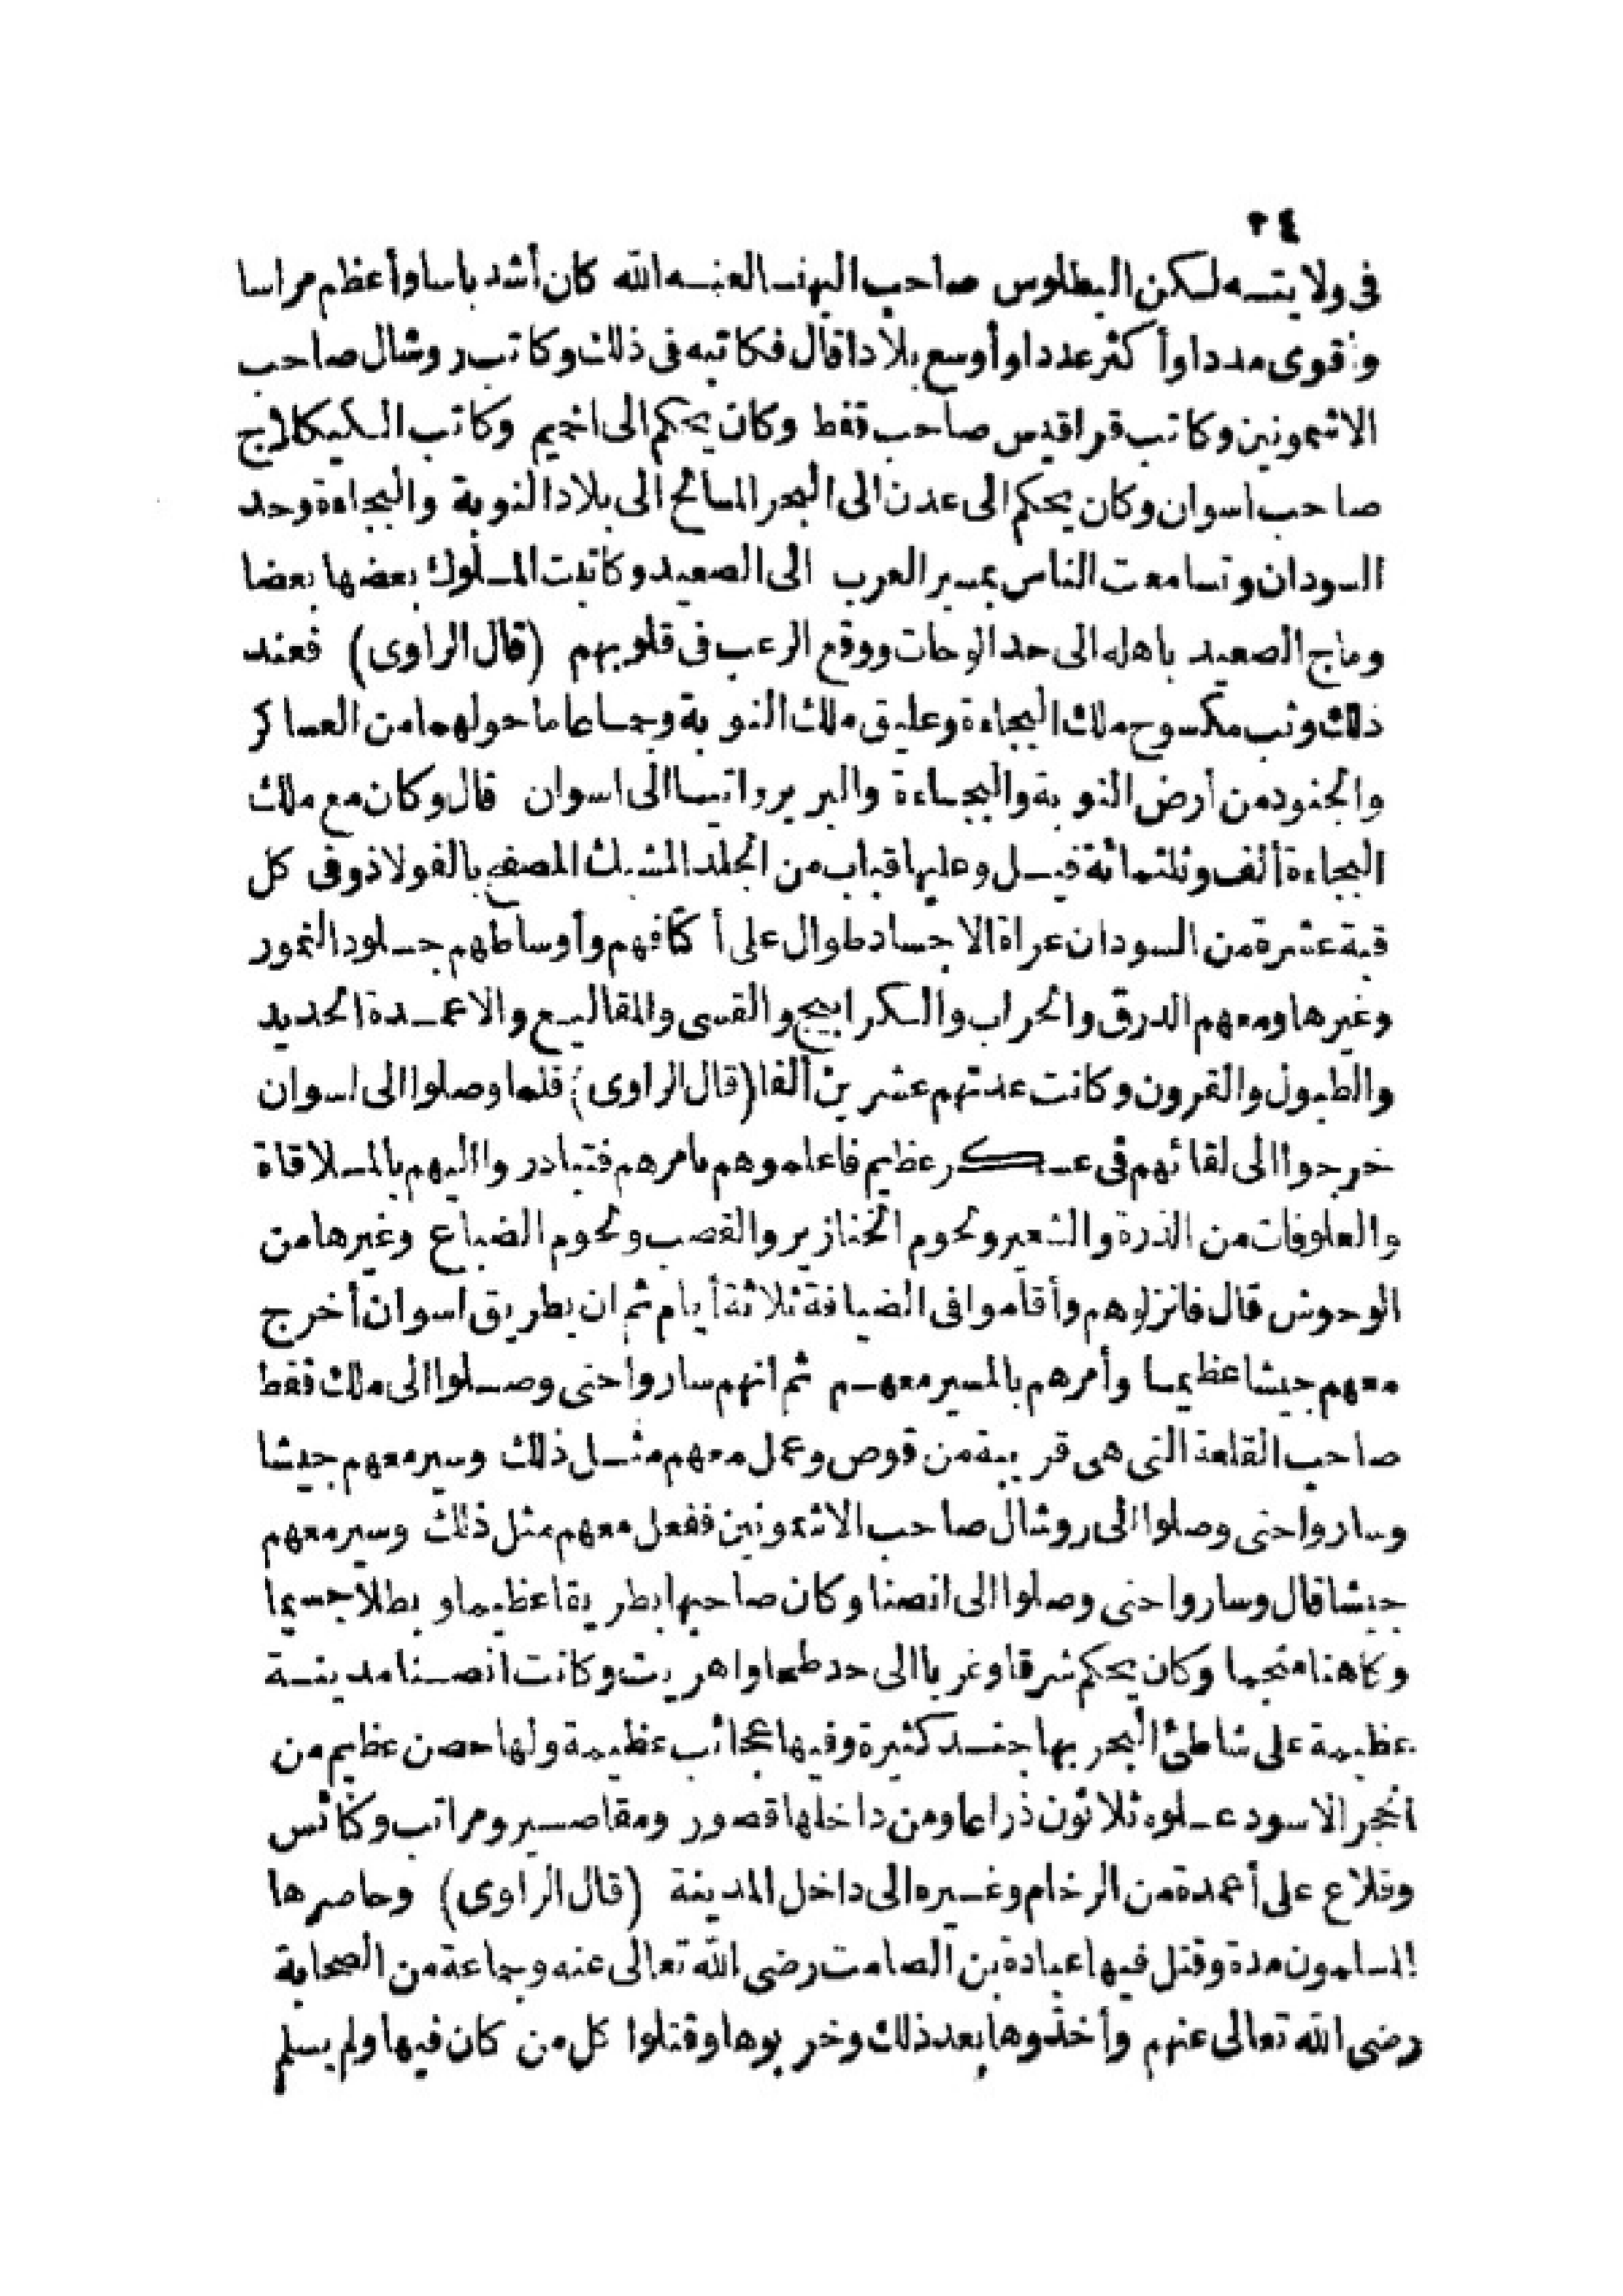 ٢٤
فى ولايته لكن البطلوس صاحب البهنسا لعنه الله كان أشد باسا وأعظم مراسا
وأقوى مددا وأكثر عددا وأوسع بلادا قال فكاتبه فى ذلك وكاتب روشال صاحب
الاشمونين وكاتب قراقيس صاحب قفط وكان يحكم الى اخميم وكاتب الكيكلاج
صاحب اسوان وكان يحكم الى عدن الى البحر المالح الى بلاد النوبة والبجاءة وحد
السودان وتسامعت الناس بمسير العرب الى الصعيد وكاتبت الملوك بعضها بعضا
وماج الصعيد باهله الى حد الوحات ووقع الرعب فى قلوبهم (قال الراوى) فعند
ذلك وثب مكسوح ملك البجاءة وعليق ملك النوبة وجمعا ما حولهما من العساكر
والجنود من أرض النوبة والبجاءة والبربر واتيا الى اسوان قال وكان مع ملك
البجاءة ألف وثلثمائة فيل وعليها قباب من الجلد المشبك المصفح بالفولاذ وفى كل
قبة عشرة من السودان عراة الاجساد طوال على أكتافهم وأوساطهم جلود النمور
وغيرها ومعهم الدرق والحراب والكرابيج والقسى والمقاليع والاعمدة الحديد
والطبول والقرون وكانت عدتهم عشرين ألفا (قال الراوى) فلما وصلوا الى اسوان
خرجوا الى لقائهم فى عسكر عظيم فاعلموهم بامرهم فتبادروا اليهم بالملاقاة
والعلوفات من الذرة والشعير ولحوم الخنازير والقصب ولحوم الضباع وغيرها من
الوحوش قال فانزلوهم وأقاموا فى الضيافة ثلاثة أيام ثم ان بطريق اسوان أخرج
معهم جيشا عظيما وأمرهم بالمسير معهم ثم انهم ساروا حتى وصلوا الى ملك قفط
صاحب القلعة التى هى قريبة من قوص وعمل معهم مثل ذلك وسير معهم جيشا
وساروا حتى وصلوا الى روشال صاحب الاشمونين ففعل معهم مثل ذلك وسير معهم
جيشا قال وساروا حتى وصلوا الى انصنا وكان صاحبها بطريقا عظيما وبطلا جسيما
وكاهنا منجما وكان يحكم شرقا وغربا الى حد طحا واهريت وكانت انصنا مدينة
عظيمة على شاطئ البحر بها جند كثيرة وفيها عجائب عظيمة ولها حصن عظيم من
الحجر الاسود علوه ثلاثون ذراعا ومن داخلها قصور ومقاصير ومراتب وكنائس
وقلاع على أعمدة من الرخام وغيره الى داخل المدينة (قال الراوى) وحاصرها
المسلمون مدة وقتل فيها عبادة بن الصامت رضى الله تعالى عنه وجماعة من الصحابة
رضى الله تعالى عنهم وأخذوها بعد ذلك وخربوها وقتلوا كل من كان فيها ولم يسلم